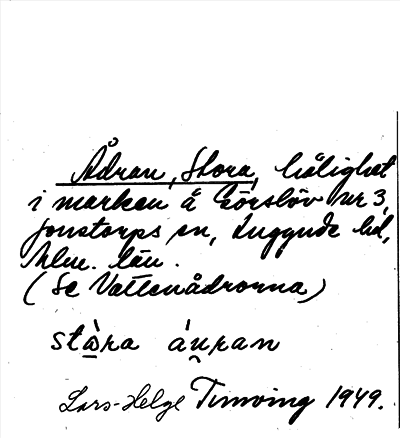 Ådran, Stora, hålighet
i marken å Görslöv nr 3,
Jonstorps sn, Luggude hd,
Mlm. län.
(Se Vattenådrorna)
stὰ̱ra áu̯ran
Lars-Helge Tunving 1949.